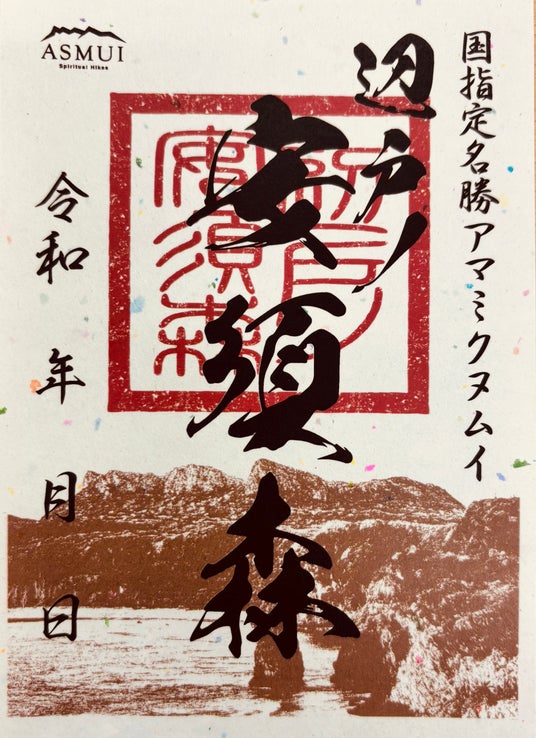 ASMUI
Spiritual Hikes
国指定名勝アマミクヌムイ
辺戸ノ
安須森
辺戸ノ
安須森
令和 年 月 日